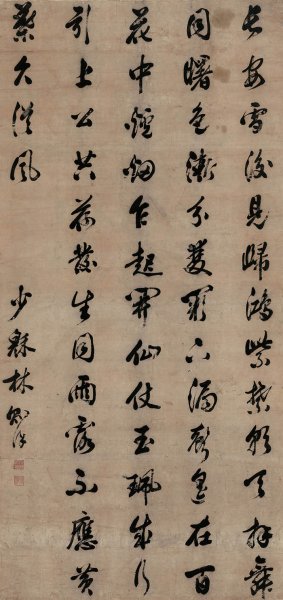 長安雪後見歸鴻紫禁朝天拜舞
同曙色漸分雙闕下漏聲遙在百
花中爐烟乍起開仙仗玉珮成行
引上公共荷發生同雨露不應黃
葉久從風
少穆林則徐